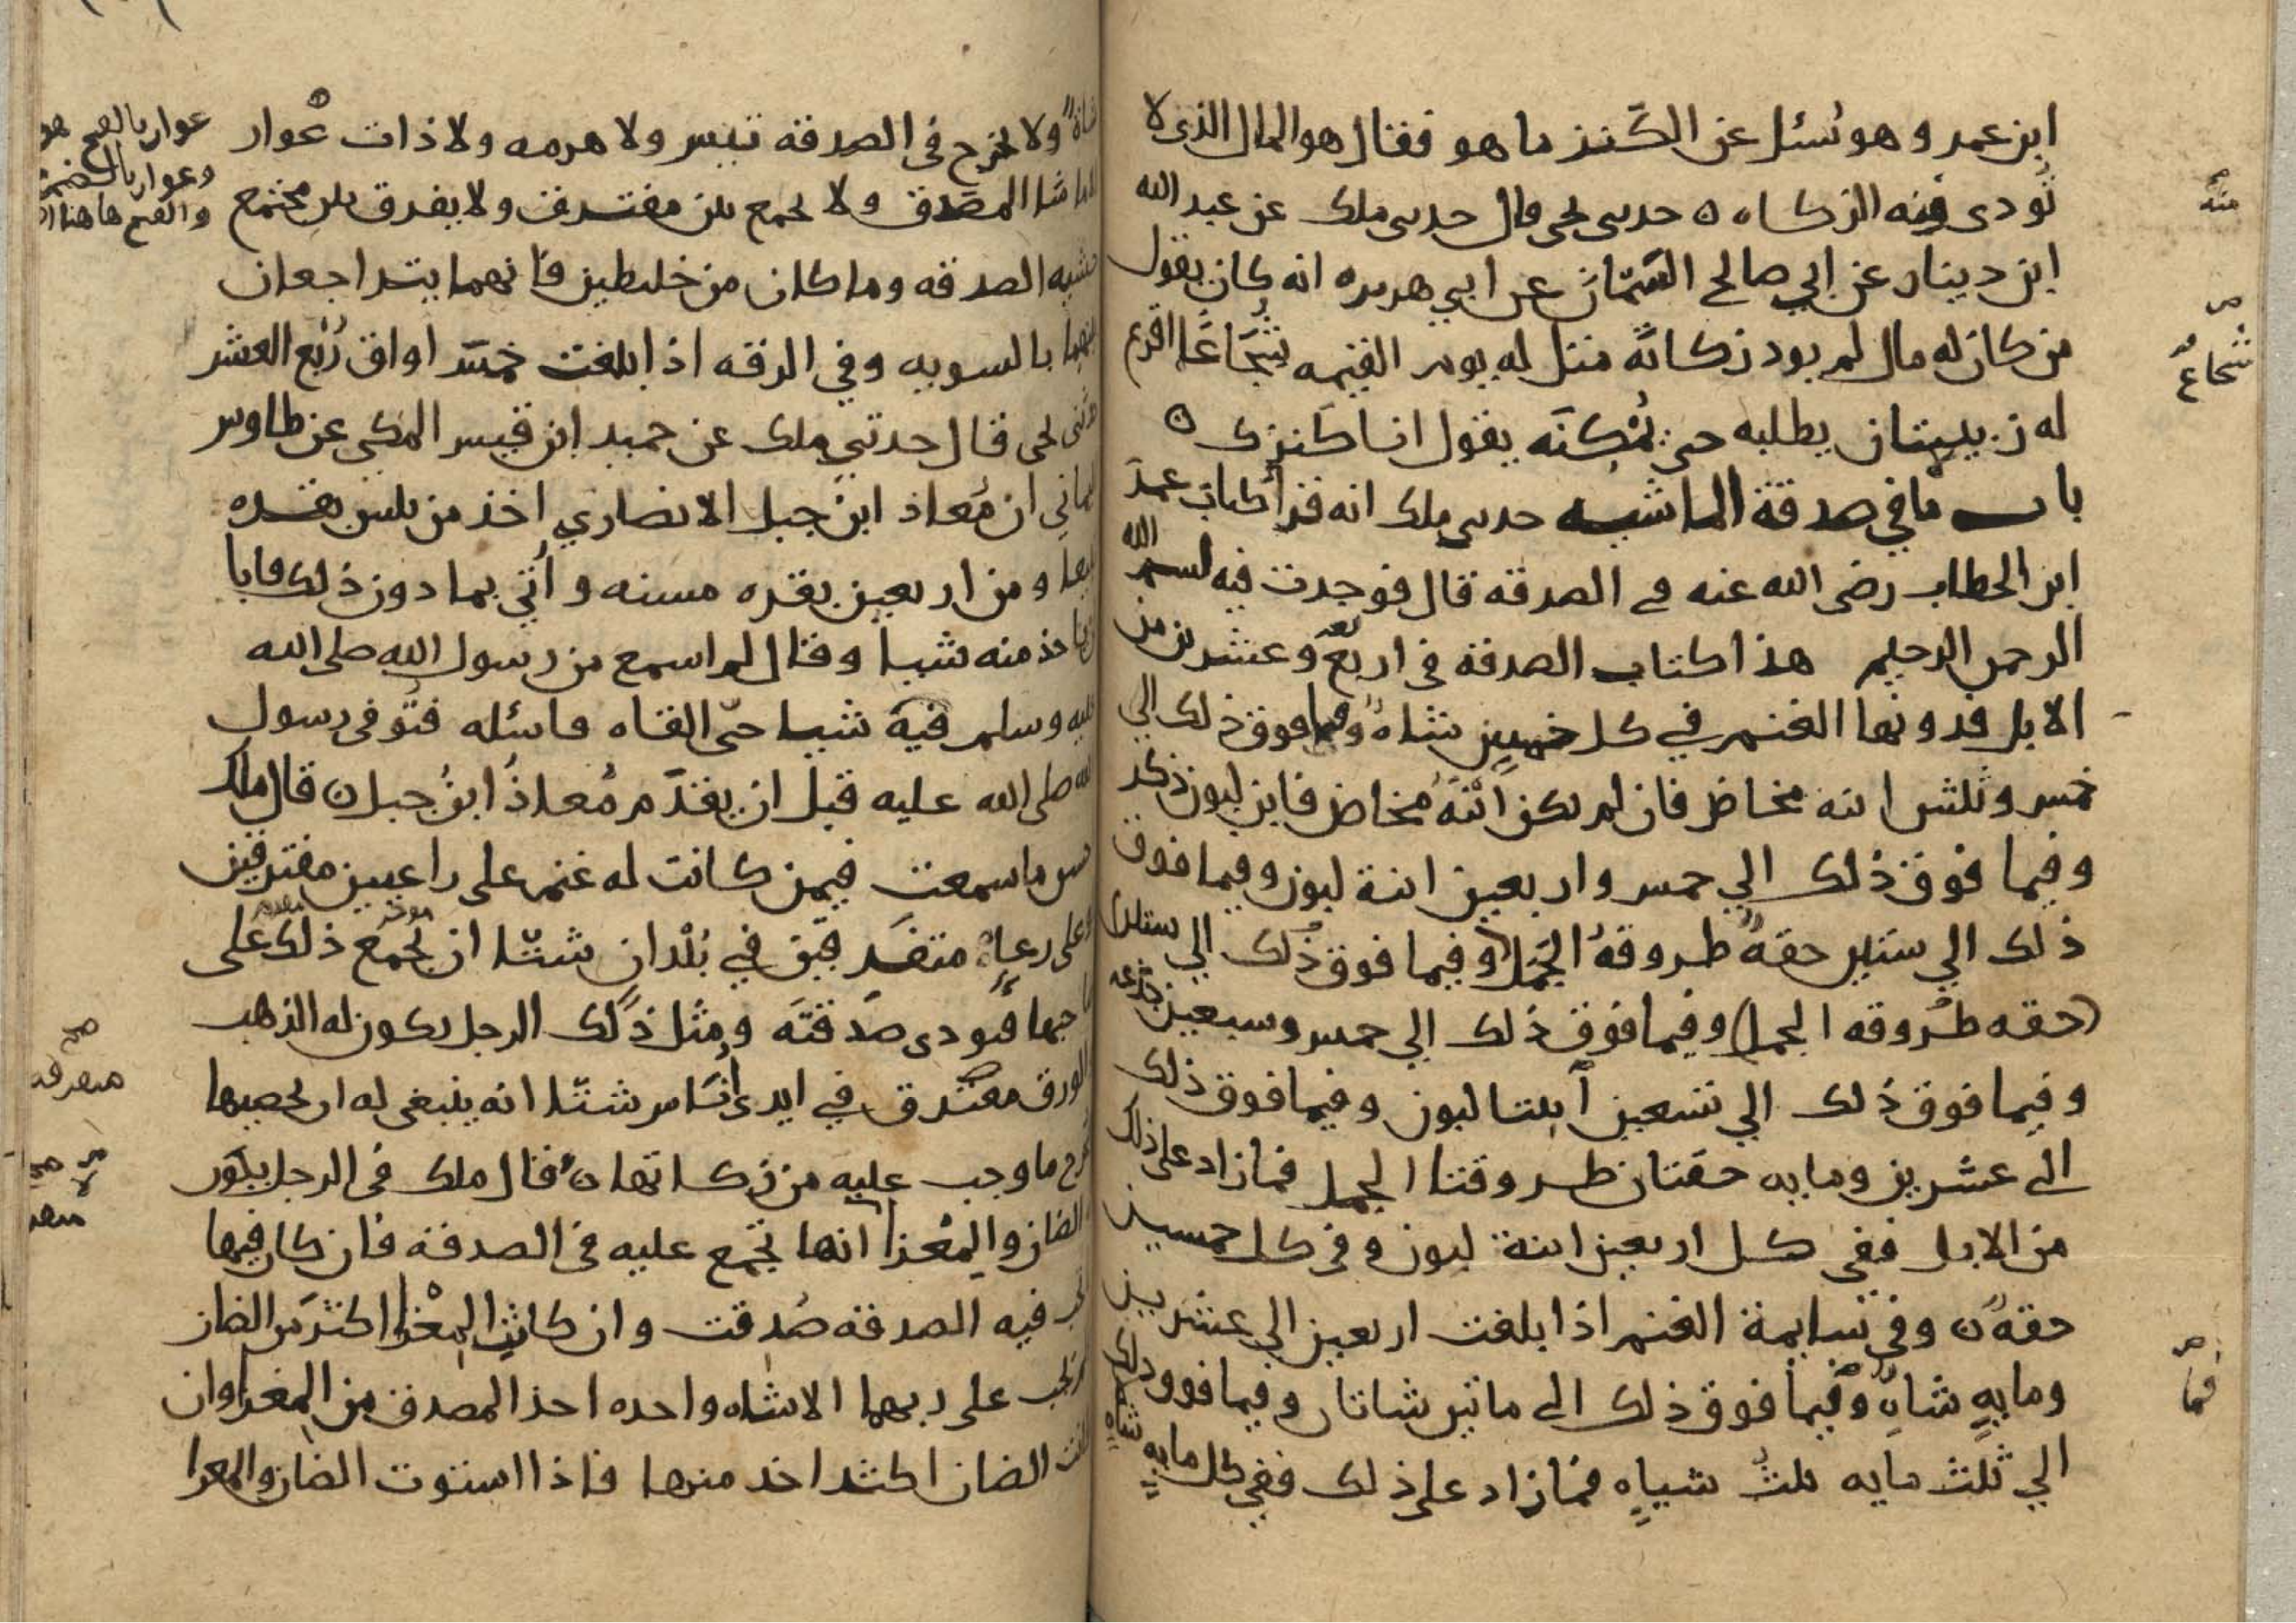 ابن عمر وهو نسئل عن الكنز ما هو فقال هو المال الذى لا
تُودى منه الزكاه ه حدىى يحيى قال حدىى ملك عن عبد الله
ابن دينار عن ابي صالح السمّان عن ابي هريره انه كان يقول
من كان له مال لم يود زكاته مثل له يوم القيمه شُجَاعًا اقرع
له زبيبتان يطلبه حتى يُمْكِنَه يقول انا كنزك ه
باب ما في صدقة الماشيه حدىى ملك انه قرأ كتاب عمر
ابن الخطاب رضى الله عنه في الصدقه قال فوجدت فيه بسم الله
الرحمن الرحيم هذا كتاب الصدقه فى اربع وعشرين من
الابل فدونها الغنم في كل خمسٍ شاةٌ وفيما فوق ذلك الي
خمس وثلثين ابنه مخاض فان لم تكن ابْنَةُ مخاض فابن لبون ذكر
وفيما فوق ذلك الي خمس واربعين ابنة لبون وفيما فوق
ذلك الي ستين حقهٌ طروقهُ الجمل (وفيما فوق ذلك الي ستين
حقه طروقه الجمل) وفيما فوق ذلك الي خمس وسبعين جذعه
وفيما فوق ذلك الي تسعين ابنتا لبون وفيما فوق ذلك
الى عشرين ومايه حقتان طروقتا الجمل فما زاد على ذلك
من الابل ففى كل اربعين ابنة لبون وفى كل خمسين
حقهٌ ه وفى سايمة الغنم اذا بلغت اربعين الي عشرين
ومايهٍ شاةٌ وفيما فوق ذلك الى ماتين شاتان وفيما فوق ذلك
الي ثلث مايه ثلثُ شياهٍ فما زاد على ذلك ففي كل مايهٍ شاه
منهُ
شجاعٌ
فما
شاةٌ ولا يخرج فى الصدقه تيس ولا هرمه ولا ذات عُوار
الا ما شا المصدق ولا يجمع بين مفترق ولا يفرق بين مجتمع
خشيه الصدقه وما كان من خليطين فانهما يتراجعان
بينهما بالسويه وفي الرقه اذا بلغت خمسَ اواق رُبْع العشر
حدثنى يحيى قال حدثني ملك عن حميد ابن قيس المكي عن طاوس
اليماني ان مُعاذ ابن جبل الانصاري اخذ من ثلثين بقره
تبيعا ومن اربعين بقره مسنه وأُتي بما دون ذلك فابا
ان ياخذ منه شيا وقال لم اسمع من رسول الله صلى الله
عليه وسلم فيه شيا حتّى القاه فاسئله فتُوفى رسول
الله صلى الله عليه قبل ان يقدَم مُعاذُ ابنُ جبل ه قال ملك
احسن ما سمعت فيمن كانت له غنم على راعيين مفترقين
وعلى رعاءٍ متفرقين في بُلْدانٍ شتّا ان يُجْمَع ذلك على
صاحبها فيودى صَدقتَه ومثل ذلك الرجل يكون له الذهب
والورق مفترق في ايدى أُنَاس شتّا انه ينبغى له ان يحصيها
فيخرج ما وجب عليه من زكاتها ه قال ملك فى الرجل يكون
له الضان والمعْزا انها تجمع عليه فى الصدقه فان كان فيها
تجب فيه الصدقه صُدِقت وان كانتِ المعْزا اكثرَ من الضان
ولم تجب على ربها الا شاه واحده اخذ المصدق من المعزا وان
كانت الضان اكثر اخذ منها فاذا استوت الضان والمعزا
عوار بالفتح هو
وعوار بالضم
مؤخر
مقدم
صح
متفرقه